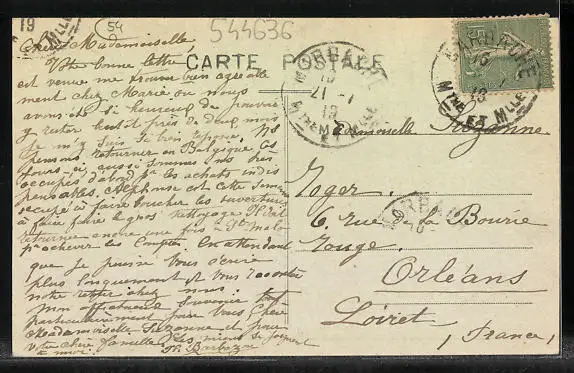 19
54
544636
CARTE POSTALE
Chère Mademoiselle,
Votre bonne lettre
est venue me trouver bien agréable
ment chez Marie où nous
avons été si heureux de pouvoir
y rester huit près de deux mois
Je m'y suis si bien reposée. Ns
pensons retourner en Belgique
jours, et aussi sommes ns très
occupés d'abord par les achats indis
pensables. Alphonse est cette semaine
occupé à faire boucher les ouvertures
à faire faire le gros nettoyage. Il doit
retourner encore une fois à St Malo
pr achever les Comptes. En attendant
que je puisse vous écrire
plus longuement et vous raconter
notre retour chez nous.
Mon affectueux souvenir tout
particulièrement pour vous, chère
Mademoiselle Suzanne et pour
votre chère famille. Les miens se joignent
à moi.
Mademoiselle Suzanne
Roger.
6. rue de la Bourie
Rouge.
Orléans
Loiret
(France)
MTHE ET MLLE